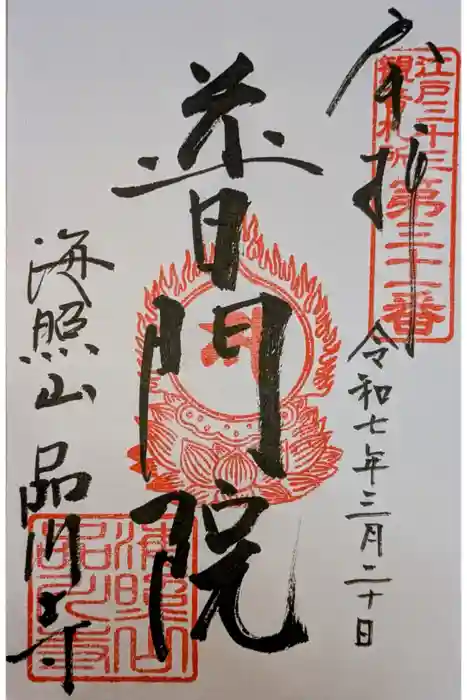 奉拝
江戸三十三
観音札所
第三十一番
令和七年三月二十日
普門院
海照山 品川寺
海照山
品川寺